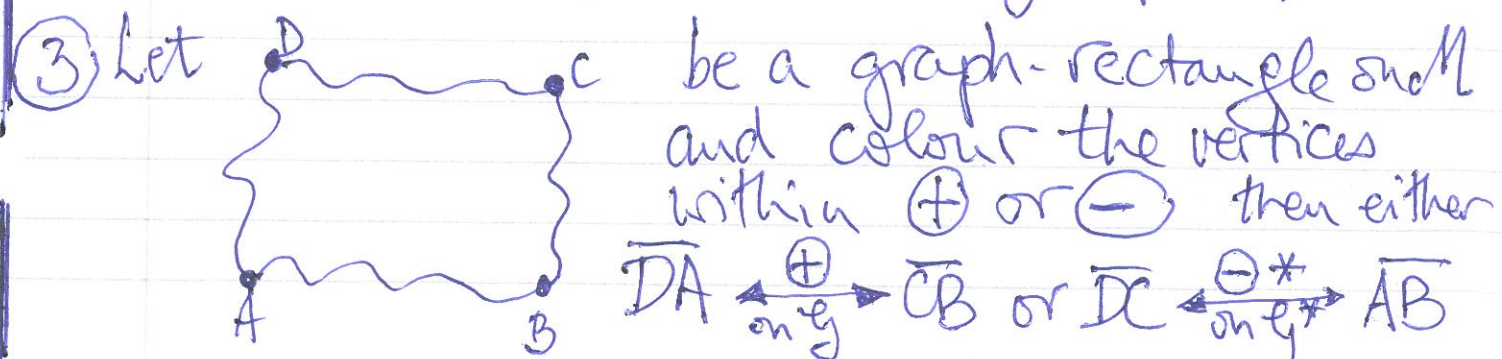 ③ Let D C be a graph-rectangle on M
and colour the vertices
within ⊕ or ⊖ then either
A B D̅A̅ ⟷ ⊕ on G C̅B̅ or D̅C̅ ⟷ ⊖* on G* A̅B̅